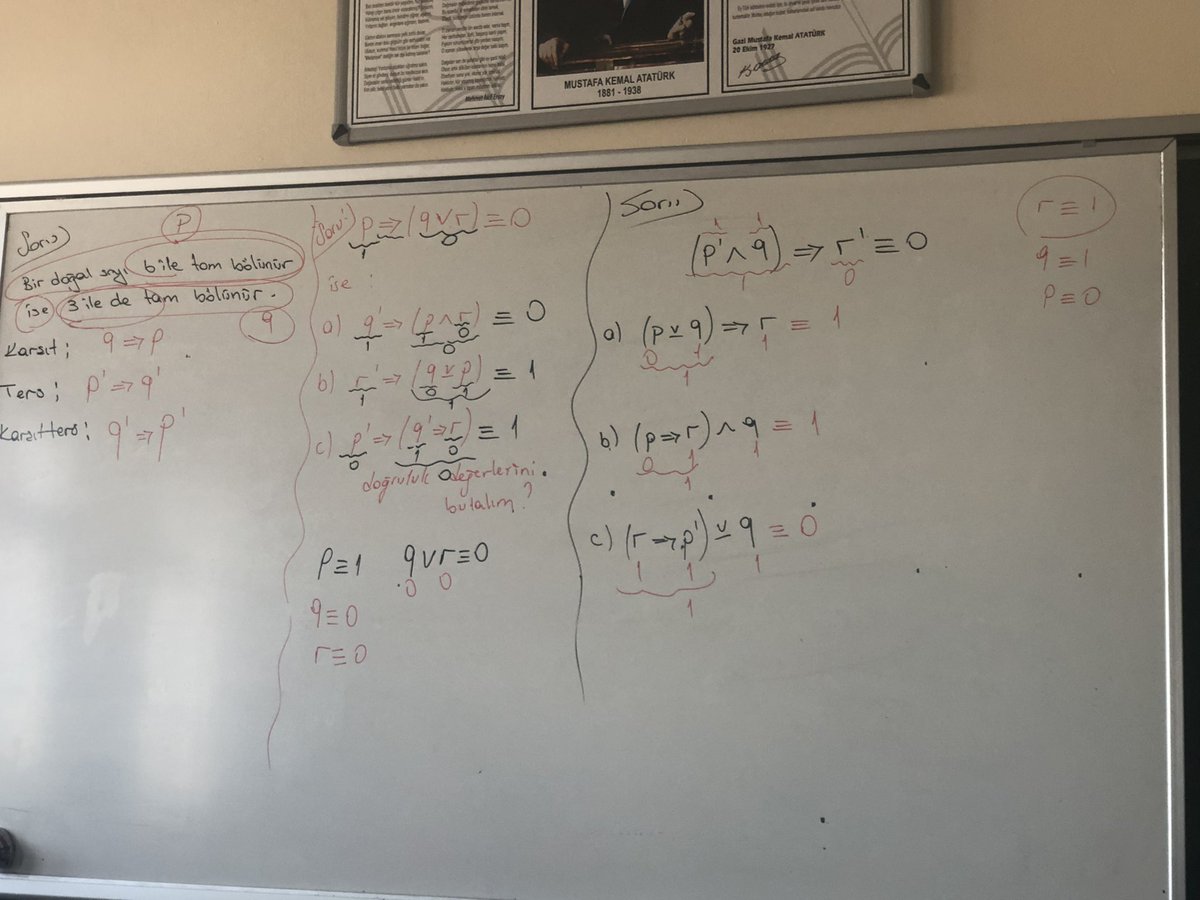 MUSTAFA KEMAL ATATÜRK
1881 - 1938
Gazi Mustafa Kemal ATATÜRK
20 Ekim 1927
Mehmet Akif Ersoy
Soru)
P
Bir doğal sayı 6 ile tam bölünür
ise 3 ile de tam bölünür.
q
Karşıt; q ⇒ p
Ters; p' ⇒ q'
Karşıt ters; q' ⇒ p'
Soru) p ⇒ (q ∨ r) ≡ 0
1 0
ise :
a) q' ⇒ (p ∧ r) ≡ 0
1 1 0
0
b) r' ⇒ (q ⊻ p) ≡ 1
1 0 1
1
c) p' ⇒ (q' ⇒ r) ≡ 1
0 1 0
0
doğruluk değerlerini
bulalım?
p ≡ 1 q ∨ r ≡ 0
0 0
q ≡ 0
r ≡ 0
Soru)
1 1
(p' ∧ q) ⇒ r' ≡ 0
1 0
a) (p ⊻ q) ⇒ r ≡ 1
0 1 1
1
b) (p ⇒ r) ∧ q ≡ 1
0 1 1
1
c) (r ⇒ p') ⊻ q ≡ 0
1 1 1
1
r ≡ 1
q ≡ 1
p ≡ 0